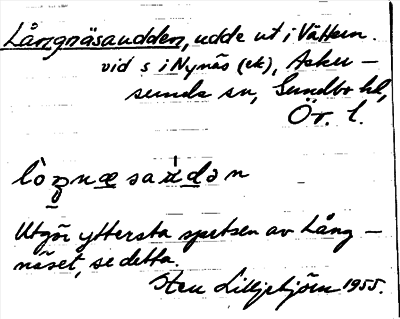 Långnäsaudden, udde ut i Vättern.
vid s i Nynäs (ek), Asker-
sunds sn, Sundbo hd,
Ör. l.
Utgör yttersta spetsen av Lång-
näset, se detta.
Sten Lilljebjörn 1955.